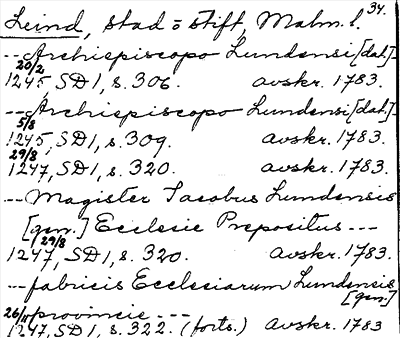 34.
Leind, stad o stift, Malm. l.
--Archiepiscopo Lundensi [dat.]
20/2
1245, SD 1, s. 306. avskr. 1783.
--Archiepiscopo Lundensi [dat.]
5/8
1245, SD 1, s. 309. avskr. 1783.
29/8
1247, SD 1, s. 320. avskr. 1783.
--Magister Jacobus Lundensis
[gen.] Ecclesie Prepositus ---
29/8
1247, SD 1, s. 320. avskr. 1783.
--fabricis Ecclesiarum Lundensis
[gen.]
provincie ---
26/11
1247, SD 1, s. 322. (forts.) avskr. 1783